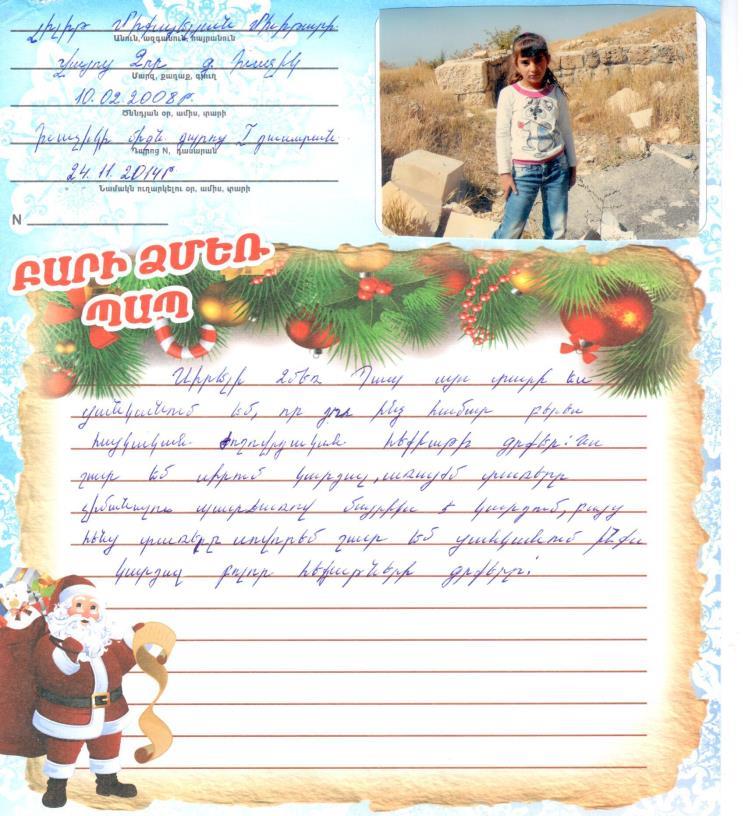 Լիլիթ Միքայելյան Մխիթարի
Անուն, ազգանուն, հայրանուն
Վայոց Ձոր գ. Խաչիկ
Մարզ, քաղաք, գյուղ
10.02.2008թ.
Ծննդյան օր, ամիս, տարի
Խաչիկի միջն դպրոց I դասարան
Դպրոց N, դասարան
24.11.2014թ
Նամակն ուղարկելու օր, ամիս, տարի
N
ԲԱՐԻ ՁՄԵՌ
ՊԱՊ
Սիրելի Ձմեռ Պապ այս տարի ես
ցանկանում եմ, որ դու ինձ համար բերես
հայկական ժողովրդական հեքիաթի գրքեր: Ես
շատ եմ սիրում կարդալ, առայժմ տառերը
չիմանալու պատճառով մայրիկս է կարդում, բայց
հենց տառերը սովորեմ շատ եմ ցանկանում ինքս
կարդալ բոլոր հեքիաթների գրքերը: